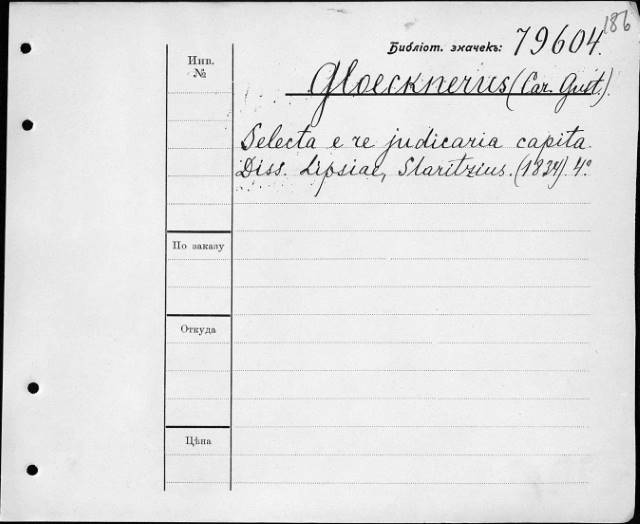 186
Библіот. значекъ: 79604.
Инв.
№
Gloecknerus (Car. Gust.)
Selecta e re judicaria capita.
Diss. Lipsiae, Staritzius. (1834). 4°
По заказу
Откуда
Цѣна